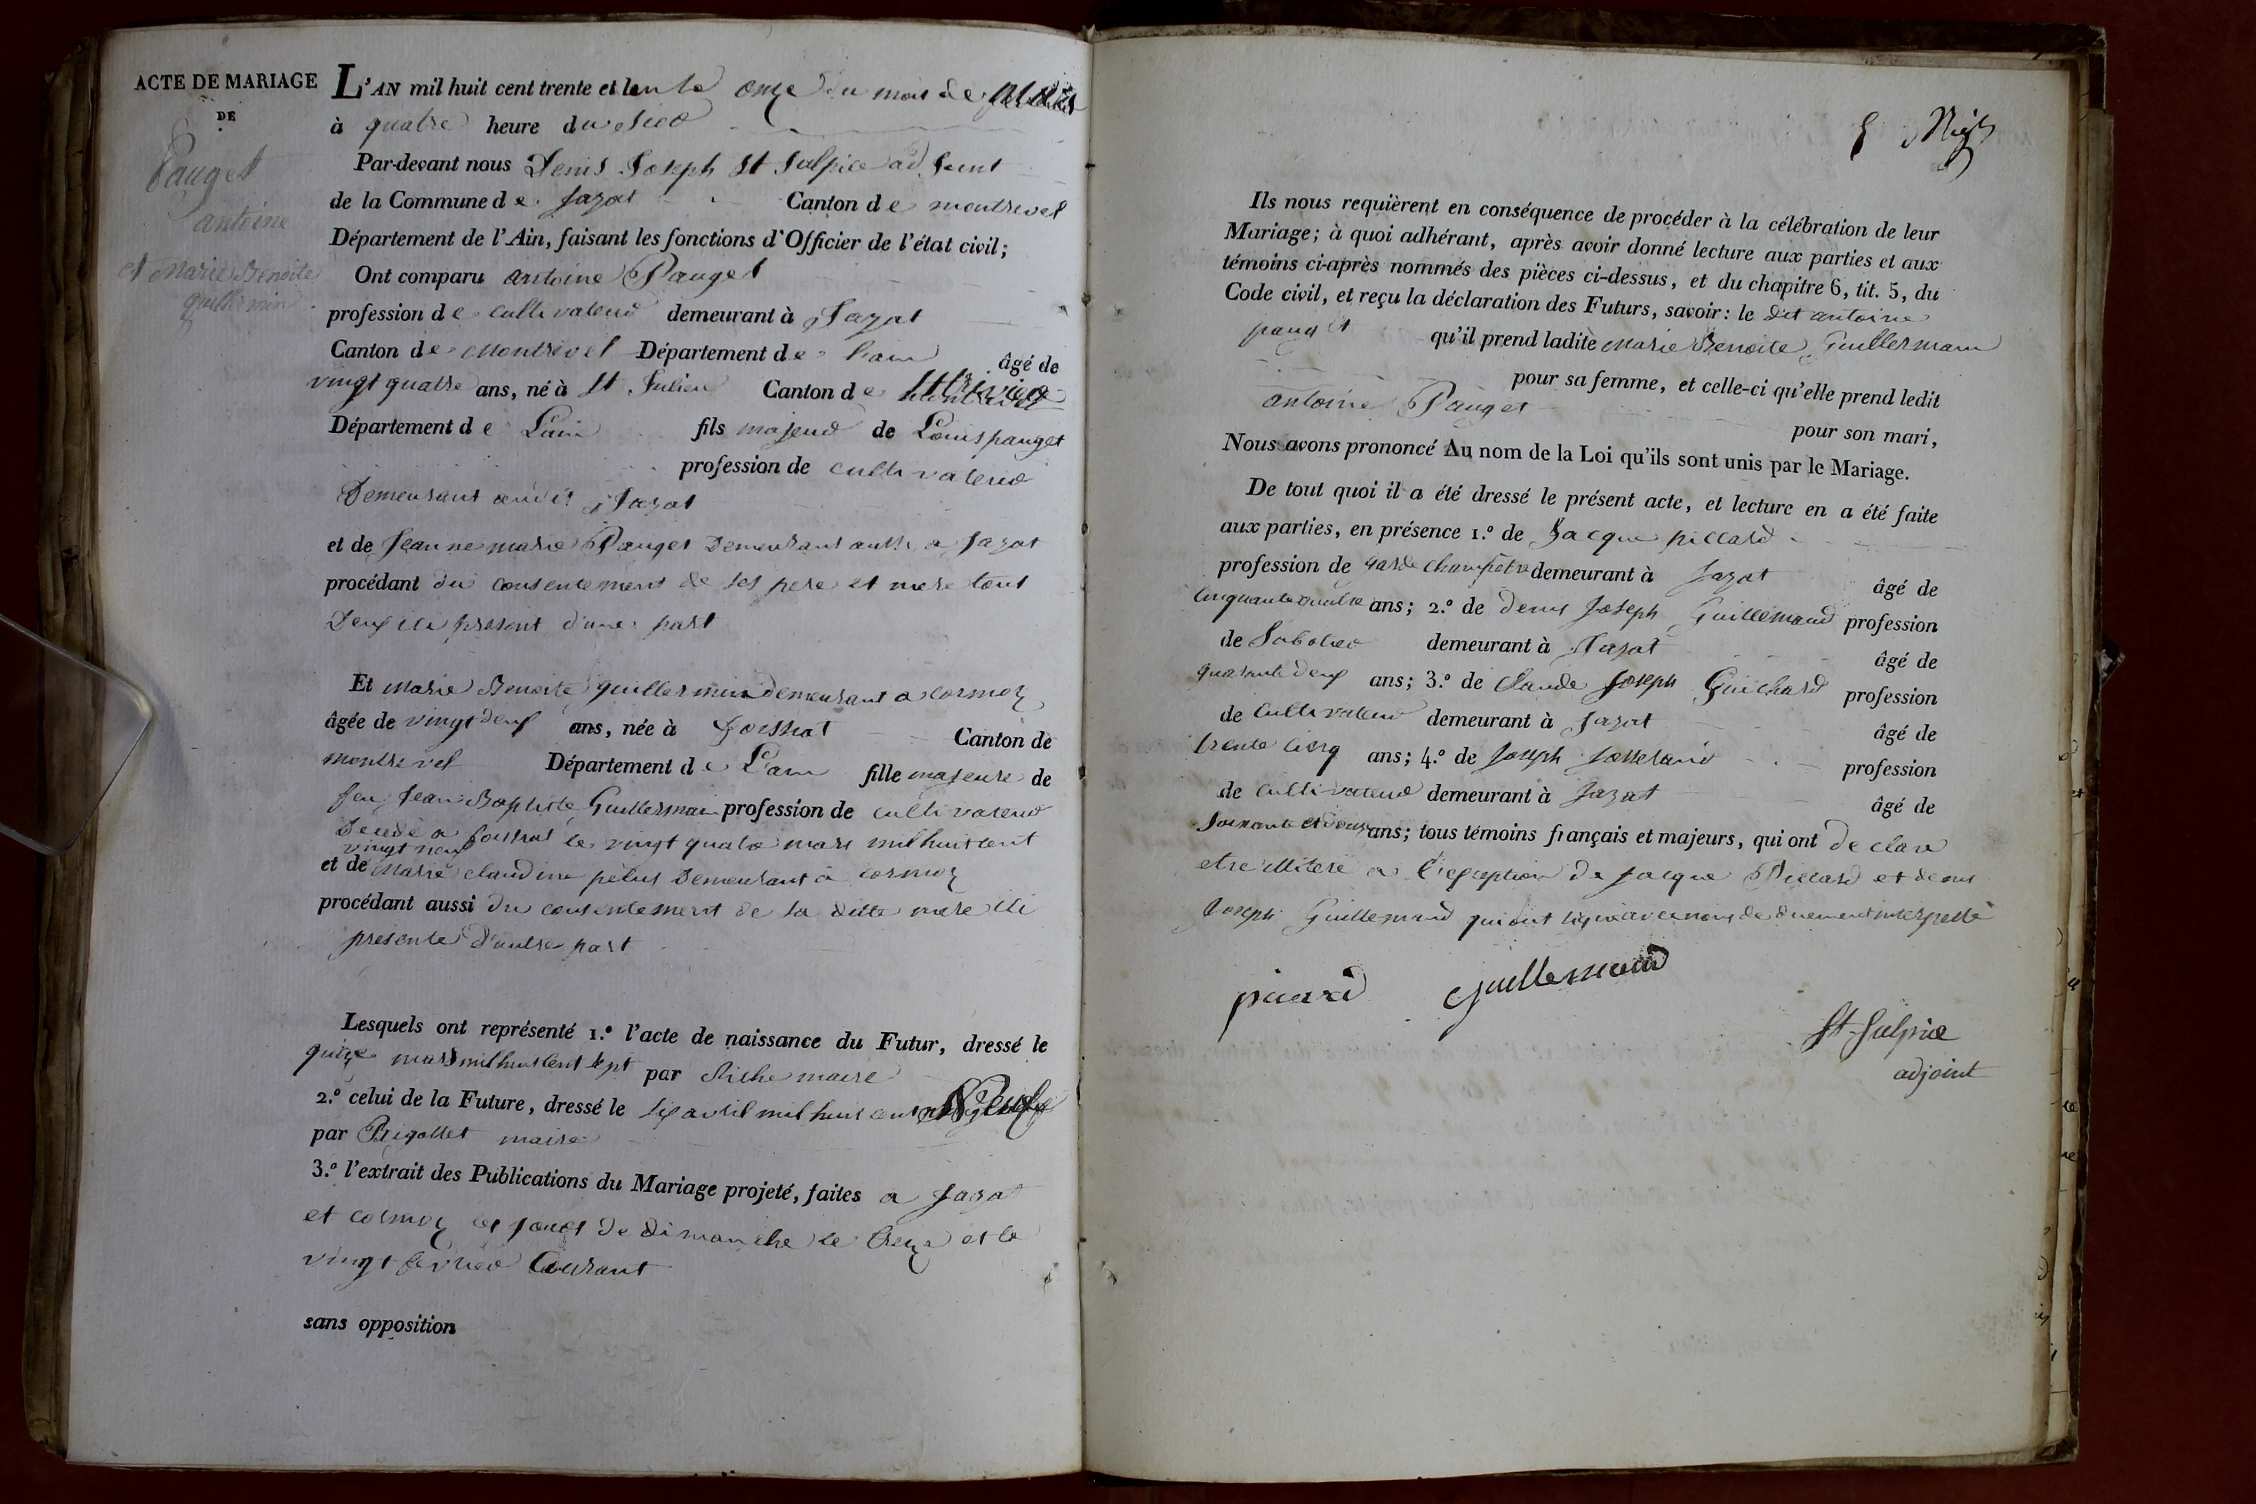 ACTE DE MARIAGE
DE
Pauget
antoine
et Marie Benoite
guillermin
L'AN mil huit cent trente et un le onze du mois de
à quatre heure du soir
Par-devant nous Denis Joseph St Sulpice adjoint
de la Commune de Jayat Canton de montrevel
Département de l'Ain, faisant les fonctions d'Officier de l'état civil;
Ont comparu antoine Pauget
profession de cultivateur demeurant à Jayat
Canton de Montrevel Département de Lain âgé de
vingt quatre ans, né à St Julien Canton de
Département de Lain fils majeur de Louis pauget
profession de cultivateur
Demeurant audit Jayat
et de Jeanne marie Pauget Demeurant aussi a Jayat
procédant du consentement de ses pere et mere tout
Deux ici present d'une part
Et Marie Benoite guillermin demeurant a cormoz
âgée de vingt deux ans, née à foissiat Canton de
montrevel Département de Lain fille majeure de
feu Jean Baptiste Guillermain profession de cultivateur
Decedé a foissiat le vingt quatre mars mil huit cent
vingt neuf
et de Marie claudine pelus Demeurant à cormoz
procédant aussi du consentement de sa ditte mere ici
presente d'autre part
Lesquels ont représenté 1.º l'acte de naissance du Futur, dressé le
quinze mars mil huit cent sept par Riche maire
2.º celui de la Future, dressé le six avril mil huit cent neuf
par Prigollet maire
3.º l'extrait des Publications du Mariage projeté, faites a Jayat
et cormoz les jours de dimanche le treize et le
vingt fevrier Courant
sans opposition
Ils nous requièrent en conséquence de procéder à la célébration de leur
Mariage; à quoi adhérant, après avoir donné lecture aux parties et aux
témoins ci-après nommés des pièces ci-dessus, et du chapitre 6, tit. 5, du
Code civil, et reçu la déclaration des Futurs, savoir: le dit antoine
pauget qu'il prend ladite Marie Benoite Guillermain
pour sa femme, et celle-ci qu'elle prend ledit
antoine Pauget
pour son mari,
Nous avons prononcé Au nom de la Loi qu'ils sont unis par le Mariage.
De tout quoi il a été dressé le présent acte, et lecture en a été faite
aux parties, en présence 1.º de Jacque pillard
profession de garde champetre demeurant à Jayat âgé de
cinquante quatre ans; 2.º de denis Joseph Guillemaud profession
de Sabotier demeurant à Jayat âgé de
quarante deux ans; 3.º de Claude Joseph Guichard profession
de Cultivateur demeurant à Jayat âgé de
trente cinq ans; 4.º de Joseph Josserand profession
de cultivateur demeurant à Jayat âgé de
soixante et deux ans; tous témoins français et majeurs, qui ont declaré
etre illiteré a l'exception de Jacque Pillard et denis
Joseph Guillemaud qui ont signé avec nous de duement interpellé
Guillemaud
St-Sulpice
adjoint